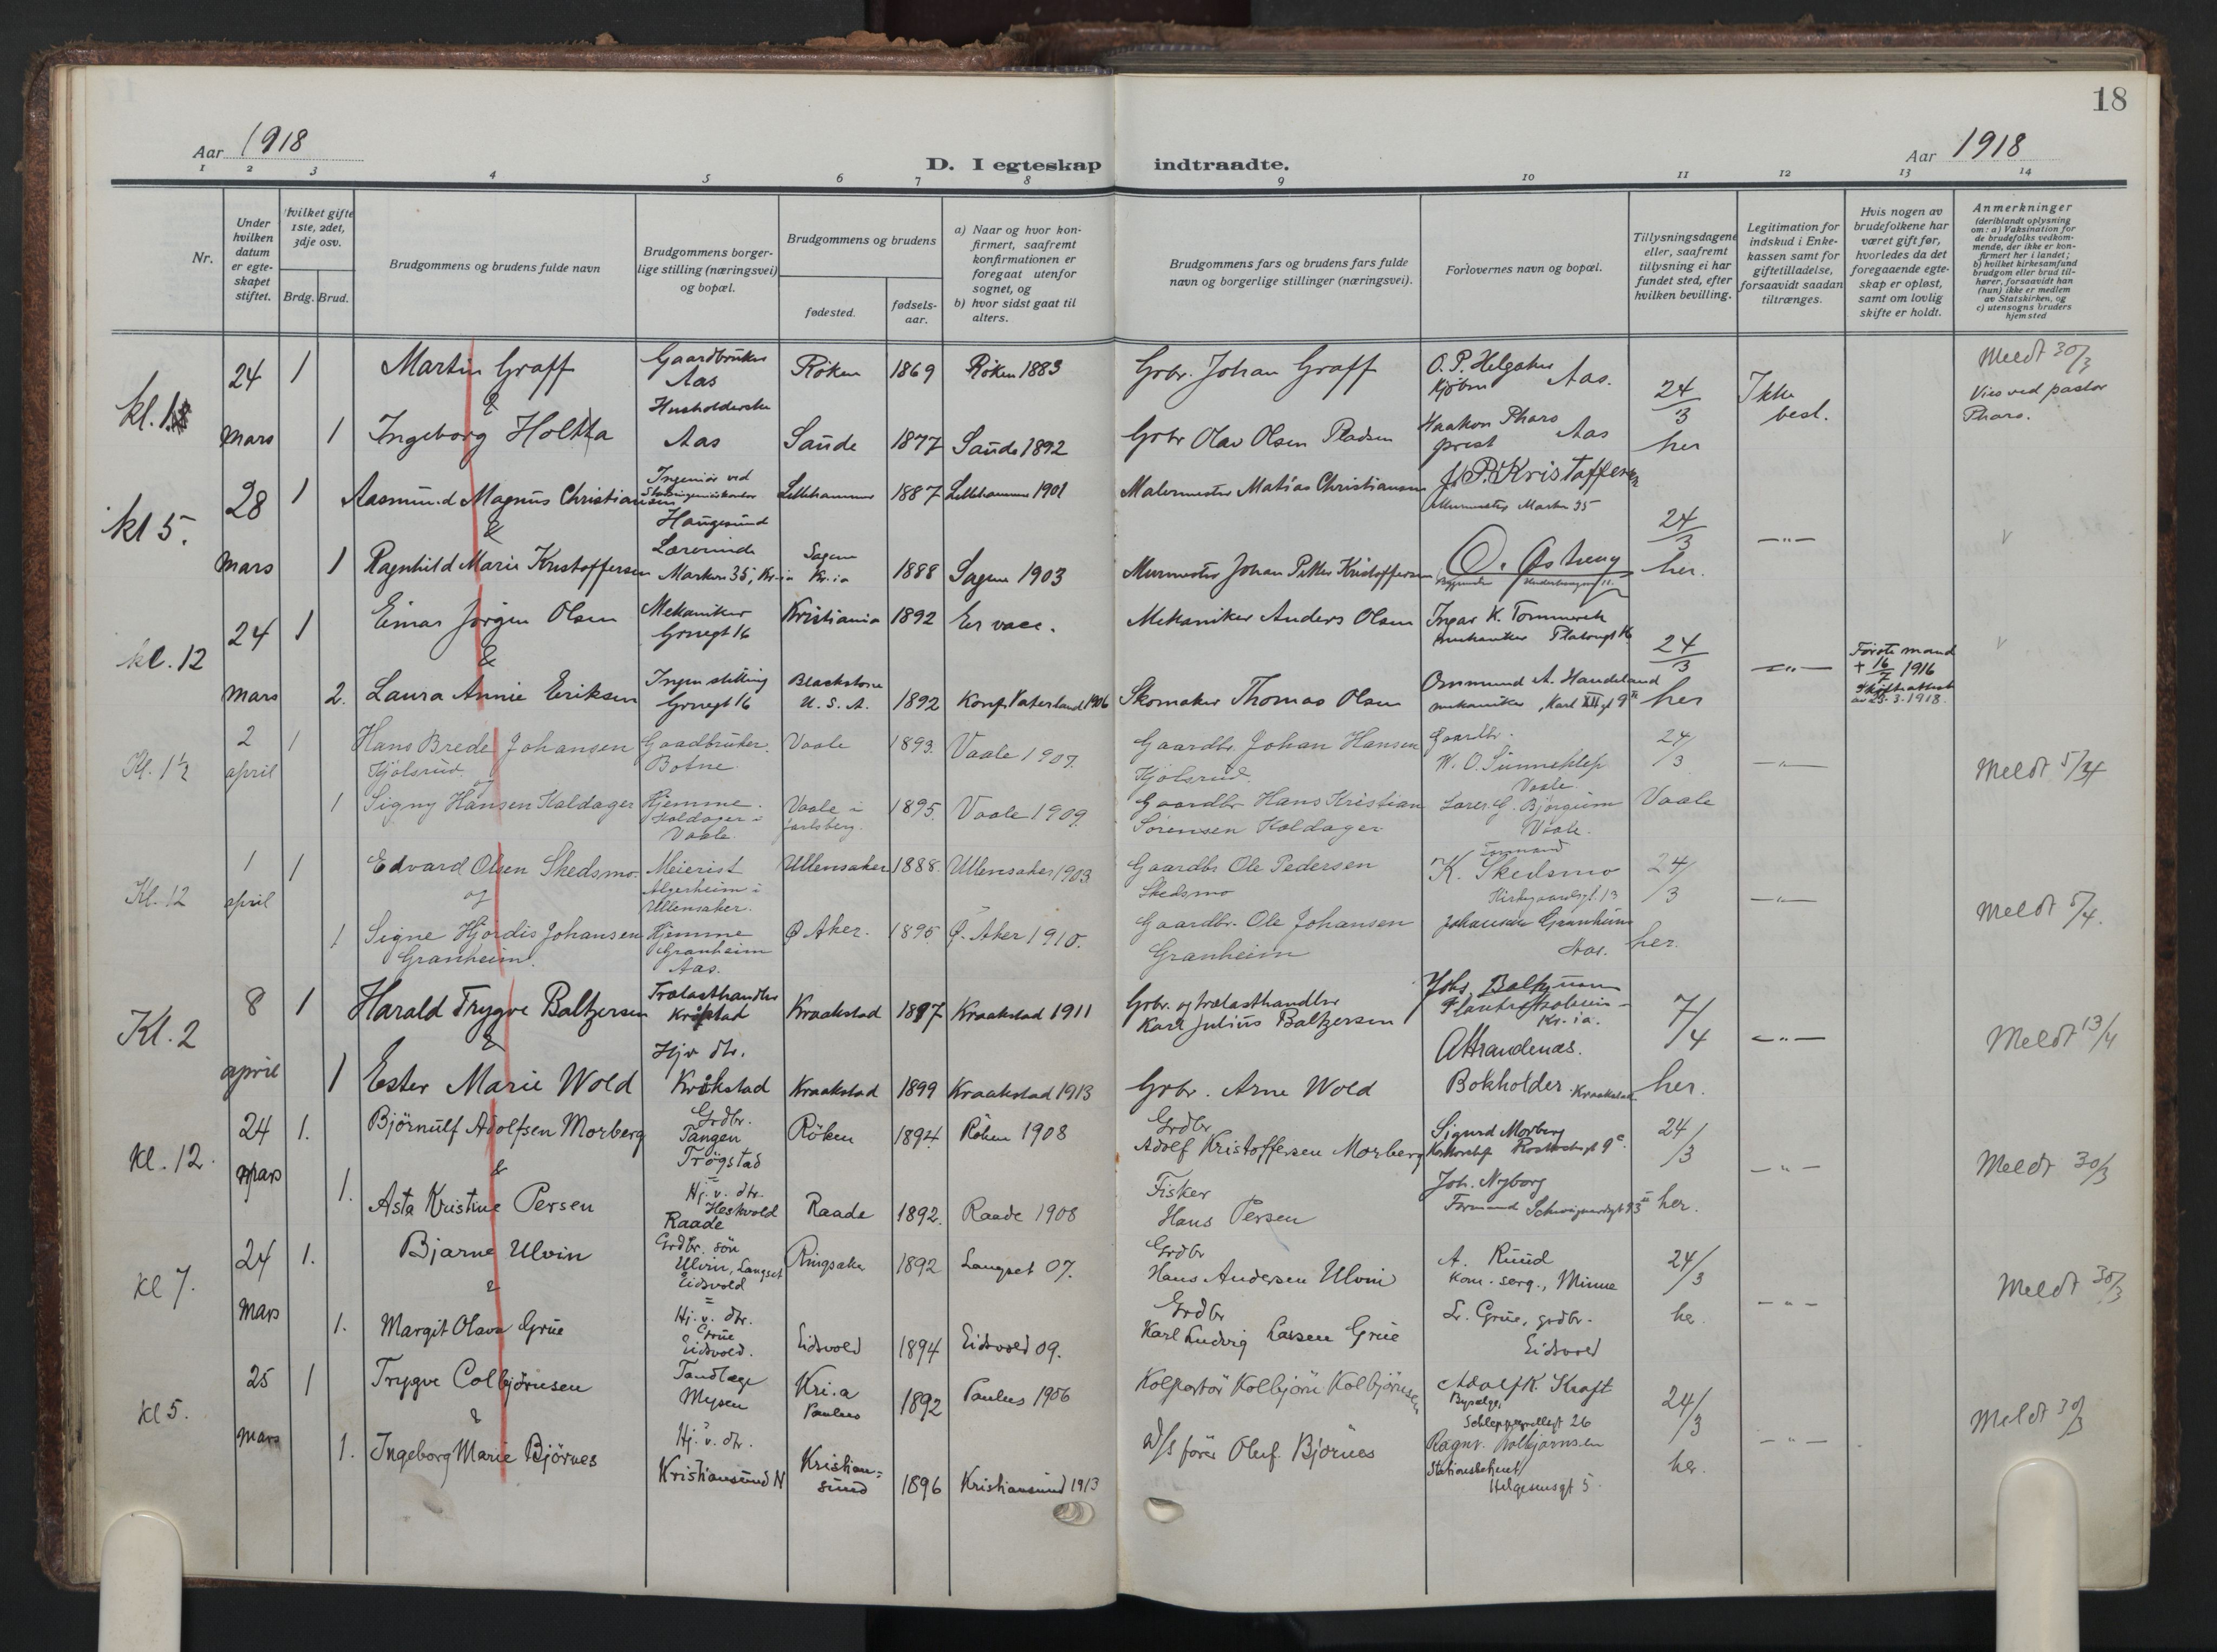 18
Aar 1918
D. I egteskap indtraadte.
Aar 1918
1 2 3 4 5 6 7 8 9 10 11 12 13 14
Nr.
Under hvilken datum er egteskapet stiftet.
Hvilket gifte 1ste, 2det, 3dje osv.
Brdg. Brud.
Brudgommens og brudens fulde navn
Brudgommens borgerlige stilling (næringsvei) og bopæl.
Brudgommens og brudens
fødested.
fødselsaar.
a) Naar og hvor konfirmert, saafremt konfirmationen er foregaat utenfor sognet, og
b) hvor sidst gaat til alters.
Brudgommens fars og brudens fars fulde navn og borgerlige stillinger (næringsvei).
Forlovernes navn og bopæl.
Tillysningsdagene eller, saafremt tillysning ei har fundet sted, efter hvilken bevilling.
Legitimation for indskud i Enkekassen samt for giftetilladelse, forsaavidt saadan tiltrænges.
Hvis nogen av brudefolkene har været gift før, hvorledes da det foregaaende egteskap er opløst, samt om lovlig skifte er holdt.
Anmerkninger (deriblandt oplysning om: a) Vaksination for de brudefolks vedkommende, der ikke er konfirmert her i landet; b) hvilket kirkesamfund brudgom eller brud tilhører, forsaavidt han (hun) ikke er medlem av Statskirken, og c) utensogns bruders hjemsted
24 1 Martin Graff Gaardbruker Aas Röken 1869 Röken 1883 Grbr. Johan Graff O. P. Helgaker Kjöbm Aas. 24/3 Ikke besl. Meldt 30/3
&
mars 1 Ingeborg Holtta Husholderske Aas Sande 1877 Sande 1892 Grbr Olav Olsen Pladsen Haakon Pharo prest Aas her Vies ved pastor Pharo.
kl 5. 28 1 Aasmund Magnus Christiansen Ingeniör ved Haugesund Lillehammer 1887 Lillehammer 1901 Malermester Matias Christiansen J. P. Kristoffersen Murmester Markv 35 24/3 —"—
&
mars 1 Ragnhild Marie Kristoffersen Lærerinde Markvn 35, Kr.ia Sagene Kr.ia 1888 Sagene 1903 Murmester Johan Petter Kristoffersen O. Östreng her.
kl. 12 24 1 Einar Jörgen Olsen Mekaniker Grnegt 16 Kristiania 1892 Er vacc. Mekaniker Anders Olsen Ingar K. Tommerek mekaniker 24/3 —"— Förste mand + 16/7 1916
&
mars 2. Laura Annie Eriksen Ingen stilling Grnegt 16 Blackstone U.S.A. 1892 Konf. Vaterland 1906 Skomaker Thomas Olsen Ommund A. Handeland mekaniker, Karl XII gt 9 her Skifteattest av 23-3-1918.
Kl. 1½ 2 april 1 Hans Brede Johansen Kjölsrud. Gaadbruker. Botne. Vaale 1893. Vaale 1907. Gaardbr. Johan Hansen Kjölsrud. Gaardbr. W. O. Sunneklep Vaale. 24/3 —"— Meldt 5/4
og
1 Signy Hansen Kaldager Hjemme. Kaldager i Vaale. Vaale i Jarlsberg. 1895. Vaale 1909. Gaardbr Hans Kristian Sörensen Kaldager Lærer G. Bjørgum Vaale. Vaale
Kl. 12 1 april 1 Edvard Olsen Skedsmo. Meierist Algerheim i Ullensaker. Ullensaker 1888. Ullensaker 1903 Gaardbr Ole Pedersen Skedsmo Formand K. Skedsmo Kirkegaardsgt. 13 24/3 —"— Meldt 5/4.
og
1 Signe Hjördis Johansen Granheim. Hjemme Granheim Aas. Ø Aker. 1895 Ø. Aker 1910. Gaardbr. Ole Johansen Granheim Johansen Granheim Aas. her.
Kl. 2 8 1 Harald Trygve Baltzersen Trælasthandler Kråkstad Kraakstad 1887 Kraakstad 1911 Grbr. og trælasthandler Karl Julius Baltzersen Johs. Kr.ia. 7/4 —"— Meldt 13/4
&
april 1 Ester Marie Wold Hjv dtr. Kråkstad Kraakstad 1899 Kraakstad 1913 Grbr. Arne Wold A Strandenæs. Bokholder. Kraakstad her.
kl. 12. 24 1. Björnulf Adolfsen Morberg Grdbr. Tangen Trögstad Röken 1894. Röken 1908 Grdbr Adolf Kristoffersen Morberg Sigurd Morberg 24/3 —"— Meldt 30/3
&
mars 1. Asta Kristine Persen Hj. v. dtr. Heskvold Raade Raade 1892. Raade 1908 Fisker Hans Persen Joh. Nyborg Formand Schweigaardsgt 93 her.
kl 7. 24 1. Bjarne Ulvin Grdbr. sön Ulvin, Langset Eidsvold Ringsaker 1892 Langset 07. Grdbr Hans Andersen Ulvin A. Ruud Kom.-serg., Minne 24/3 —"— Meldt 30/3
&
mars 1. Margit Olava Grue Hj. v. dtr. Grue Eidsvold. Eidsvold 1894 Eidsvold 09. Grdbr Karl Ludvig Larsen Grue L. Grue, grdbr. Eidsvold her.
kl 5. 25 1 Trygve Colbjörnsen Tandlæge Mysen Kri.a Paulus 1892 Paulus 1906 Kolportör Kolbjörn Kolbjörnsen Adolf K. Kraft Schleppegrellsgt 26 24/3 —"— Meldt 30/3
&
mars 1. Ingeborg Marie Björnes Hj. v. dtr. Kristiansund N Kristiansund 1896 Kristiansund 1913 D/s förer Oluf Björnes Ragnv. Kolbjørnsen Stationsbetjent Helgesensgt 5 her.